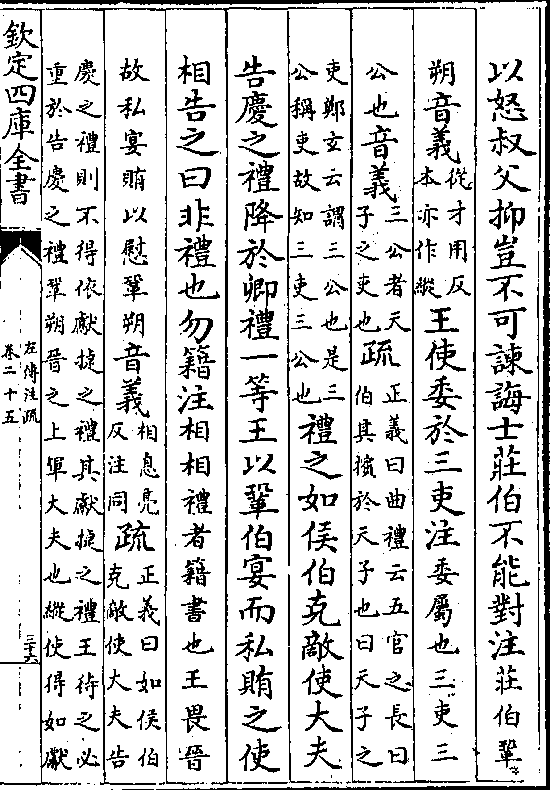 以怒叔父抑豈不可諫誨士莊伯不能對注莊伯鞏
朔音義從才用反
本亦作縱王使委於三吏注委屬也三吏三
公也音義三公者天
子之吏也疏正義曰曲禮云五官之長曰
伯其擯於天子也曰天子之
吏鄭玄云謂三公也是三
公稱吏故知三吏三公也禮之如侯伯克敵使大夫
告慶之禮降於卿禮一等王以鞏伯宴而私賄之使
相告之曰非禮也勿籍注相相禮者籍書也王畏晉
故私宴賄以慰鞏朔音義相息亮
反注同疏正義曰如侯伯
克敵使大夫告
慶之禮則不得依獻捷之禮其獻捷之禮王待之必
重於告慶之禮鞏朔晉之上軍大夫也縱使得如獻
欽定四庫全書
左傳注疏
卷二十五
三十六